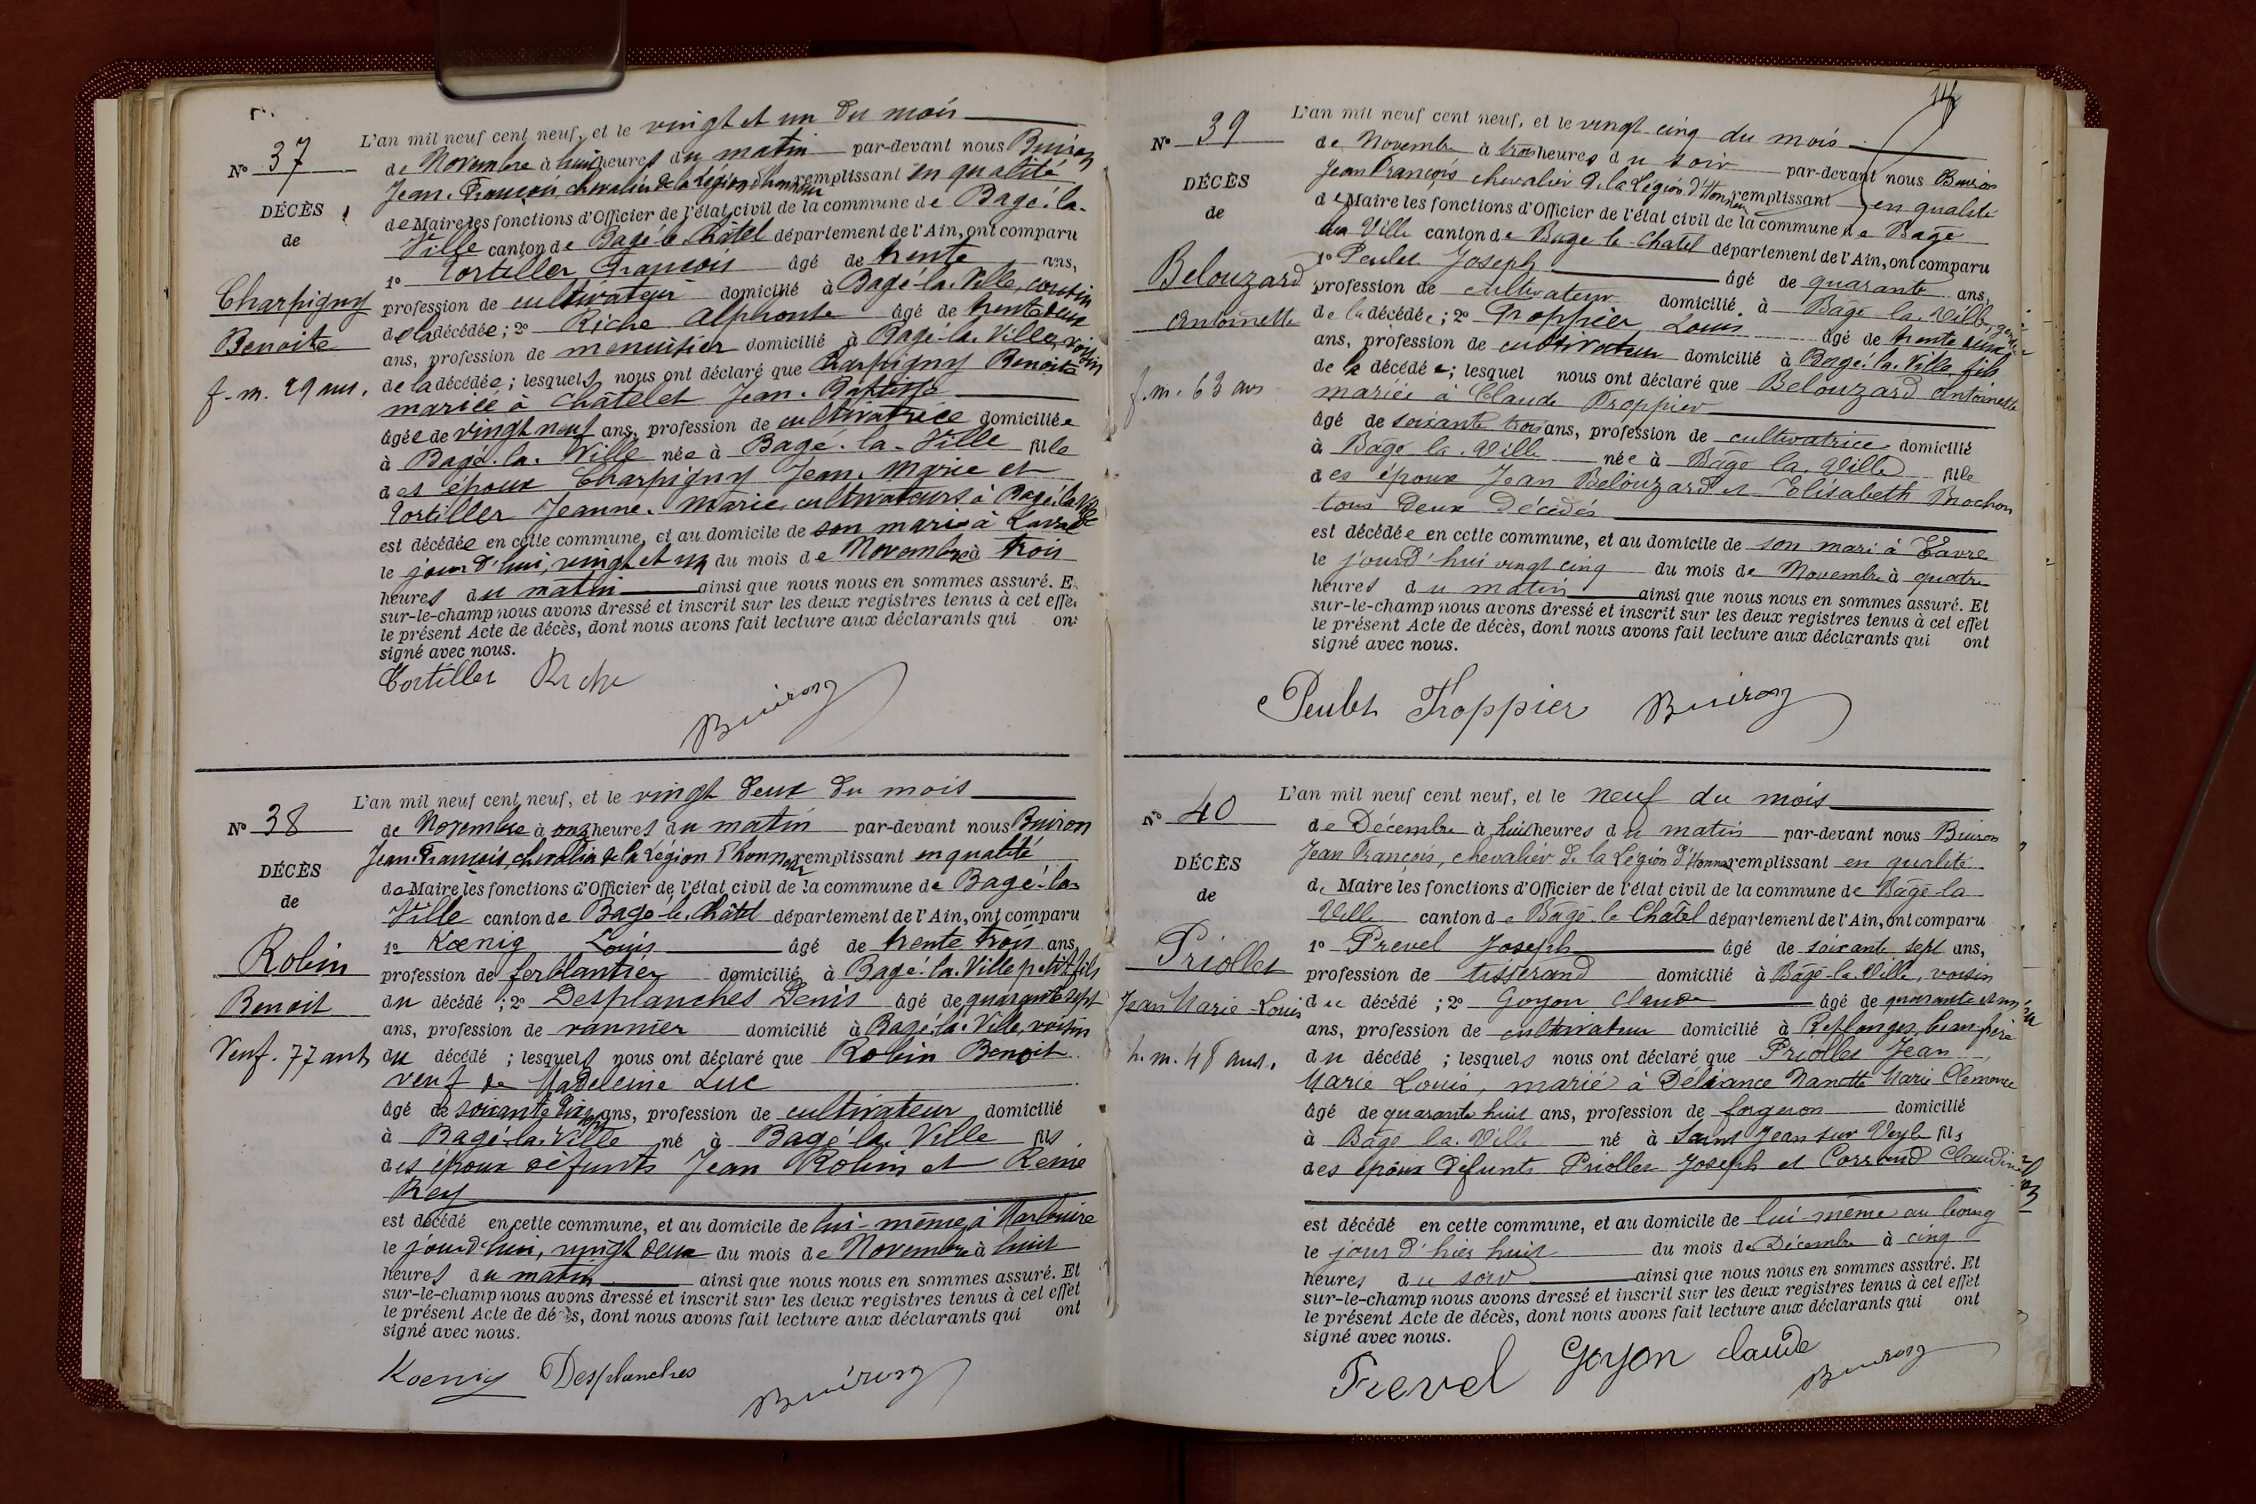 N° 37
DÉCÈS
de
Charpigny
Benoite
f. m. 29 ans.
L'an mil neuf cent neuf, et le vingt et un du mois
de Novembre à huit heures du matin par-devant nous Buiron
Jean-François, chevalier de la Légion d'honneur remplissant en qualité
de Maire les fonctions d'Officier de l'état civil de la commune de Bagé-la-
Ville canton de Bagé-le-Châtel département de l'Ain, ont comparu
1° Tortiller François âgé de trente ans,
profession de cultivateur domicilié à Bagé-la-Ville, cousin
de la décédée; 2° Riche Alphonse âgé de trente deux
ans, profession de menuisier domicilié à Bagé-la-Ville, voisin
de la décédée; lesquels nous ont déclaré que Charpigny Benoite
mariée à Châtelet Jean-Baptiste
âgée de vingt neuf ans, profession de cultivatrice domiciliée
à Bagé-la-Ville née à Bagé-la-Ville fille
des époux Charpigny Jean-Marie et
Tortiller Jeanne-Marie, cultivateurs à Bagé-la-Ville
est décédée en cette commune, et au domicile de son mari à
le jour d'hui, vingt et un du mois de Novembre à trois
heures du matin ainsi que nous nous en sommes assuré. E
sur-le-champ nous avons dressé et inscrit sur les deux registres tenus à cet effe
le présent Acte de décès, dont nous avons fait lecture aux déclarants qui on
signé avec nous.
Tortiller Riche
Buiron
N° 38
DÉCÈS
de
Robin
Benoit
Veuf. 77 ans
L'an mil neuf cent neuf, et le vingt deux du mois
de Novembre à onze heures du matin par-devant nous Buiron
Jean-François chevalier de la Légion d'honneur remplissant en qualité
de Maire les fonctions d'Officier de l'état civil de la commune de Bagé-la-
Ville canton de Bagé-le-Châtel département de l'Ain, ont comparu
1° Kœnig Louis âgé de trente trois ans,
profession de ferblantier domicilié à Bagé-la-Ville petit fils
du décédé; 2° Desplanches Denis âgé de quarante sept
ans, profession de vannier domicilié à Bagé-la-Ville, voisin
du décédé; lesquels nous ont déclaré que Robin Benoit
veuf de Madeleine Luc
âgé de soixante dix sept ans, profession de cultivateur domicilié
à Bagé-la-Ville né à Bagé-la-Ville fils
des époux défunts Jean Robin et Reine
Rey
est décédé en cette commune, et au domicile de lui-même, à Marboire
le jour d'hui, vingt deux du mois de Novembre à huit
heures du matin ainsi que nous nous en sommes assuré. Et
sur-le-champ nous avons dressé et inscrit sur les deux registres tenus à cet effet
le présent Acte de décès, dont nous avons fait lecture aux déclarants qui ont
signé avec nous.
Koenig Desplanches
Buiron
N° 39
DÉCÈS
de
Belouzard
Antoinette
f. m. 63 ans
L'an mil neuf cent neuf, et le vingt cinq du mois
de Novembre à trois heures du soir par-devant nous Buiron
Jean François chevalier de la Légion d'Honneur remplissant en qualité
de Maire les fonctions d'Officier de l'état civil de la commune de Bagé
la Ville canton de Bagé le Chatel département de l'Ain, ont comparu
1° Peulet Joseph âgé de quarante ans,
profession de cultivateur domicilié à Bagé la Ville, gendre
de la décédée; 2° Proppier Louis âgé de trente deux
ans, profession de cultivateur domicilié à Bagé-la-Ville, fils
de la décédée; lesquel nous ont déclaré que Belouzard Antoinette
mariée à Claude Proppier
âgé de soixante trois ans, profession de cultivatrice domicilié
à Bagé la Ville née à Bagé la Ville fille
des époux Jean Belouzard et Elisabeth Brochon
tous deux décédés
est décédée en cette commune, et au domicile de son mari à
le jourd'hui vingt cinq du mois de Novembre à quatre
heures du matin ainsi que nous nous en sommes assuré. Et
sur-le-champ nous avons dressé et inscrit sur les deux registres tenus à cet effet
le présent Acte de décès, dont nous avons fait lecture aux déclarants qui ont
signé avec nous.
Peulet Proppier Buiron
N° 40
DÉCÈS
de
Priollet
Jean Marie-Louis
h. m. 48 ans.
L'an mil neuf cent neuf, et le neuf du mois
de Décembre à huit heures du matin par-devant nous Buiron
Jean François, chevalier de la Légion d'Honneur remplissant en qualité
de Maire les fonctions d'Officier de l'état civil de la commune de Bagé-la
Ville canton de Bagé-le-Châtel département de l'Ain, ont comparu
1° Prevel Joseph âgé de soixante sept ans,
profession de tisserand domicilié à Bagé-la-Ville, voisin
du décédé; 2° Goyon Claude âgé de quarante et un
ans, profession de cultivateur domicilié à Replonges, beau-frère
du décédé; lesquels nous ont déclaré que Priollet Jean
Marie Louis, marié à Déliance Nanette Marie Clemence
âgé de quarante huit ans, profession de forgeron domicilié
à Bagé la Ville né à Saint Jean sur Veyle fils
des époux défunts Priollet Joseph et Corrand Claudine
est décédé en cette commune, et au domicile de lui-même au bourg
le jour d'hier huit du mois de Décembre à cinq
heures du soir ainsi que nous nous en sommes assuré. Et
sur-le-champ nous avons dressé et inscrit sur les deux registres tenus à cet effet
le présent Acte de décès, dont nous avons fait lecture aux déclarants qui ont
signé avec nous.
Prevel Goyon Claude
Buiron